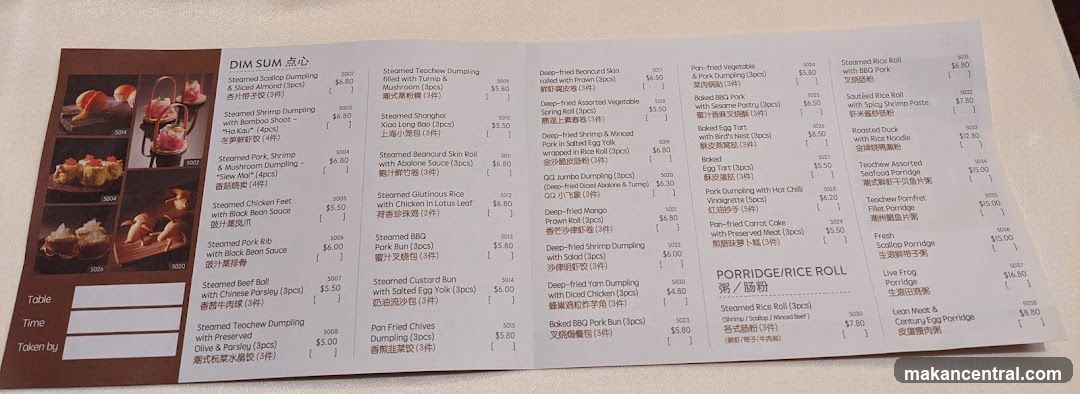 5014
5002
5004
5026
5020
Table
Time
Taken by
DIM SUM 点心
Steamed Scallop Dumpling
& Sliced Almond (3pcs)
杏片带子饺 (3件)
5002
$6.80
[ ]
Steamed Shrimp Dumpling
with Bamboo Shoot –
"Ha Kau" (4pcs)
冬笋鲜虾饺 (4件)
5003
$6.80
[ ]
Steamed Pork, Shrimp
& Mushroom Dumpling –
"Siew Mai" (4pcs)
香菇烧卖 (4件)
5004
$6.80
[ ]
Steamed Chicken Feet
with Black Bean Sauce
豉汁蒸凤爪
5005
$5.50
[ ]
Steamed Pork Rib
with Black Bean Sauce
豉汁蒸排骨
5006
$6.00
[ ]
Steamed Beef Ball
with Chinese Parsley (3pcs)
香茜牛肉球 (3件)
5007
$5.50
[ ]
Steamed Teochew Dumpling
with Preserved
Olive & Parsley (3pcs)
潮式榄菜水晶饺 (3件)
5008
$5.00
[ ]
Steamed Teochew Dumpling
filled with Turnip &
Mushroom (3pcs)
潮式蒸粉粿 (3件)
5009
$5.80
[ ]
Steamed Shanghai
Xiao Long Bao (3pcs)
上海小笼包 (3件)
5010
$5.50
[ ]
Steamed Beancurd Skin Roll
with Abalone Sauce (3pcs)
鲍汁鲜竹卷 (3件)
5011
$6.80
[ ]
Steamed Glutinous Rice
with Chicken in Lotus Leaf
荷香珍珠鸡 (2件)
5012
$6.80
[ ]
Steamed BBQ
Pork Bun (3pcs)
蜜汁叉烧包 (3件)
5013
$5.80
[ ]
Steamed Custard Bun
with Salted Egg Yolk (3pcs)
奶油流沙包 (3件)
5014
$6.00
[ ]
Pan Fried Chives
Dumpling (3pcs)
香煎韭菜饺 (3件)
5015
$5.80
[ ]
Deep-fried Beancurd Skin
rolled with Prawn (3pcs)
鲜虾腐皮卷 (3件)
5017
$6.50
[ ]
Deep-fried Assorted Vegetable
Spring Roll (3pcs)
鼎湖上素春卷 (3件)
5018
$5.50
[ ]
Deep-fried Shrimp & Minced
Pork in Salted Egg Yolk
wrapped in Rice Roll (3pcs)
金沙脆皮肠粉 (3件)
5019
$6.80
[ ]
QQ Jumbo Dumpling (3pcs)
(Deep-fried Diced Abalone & Turnip)
QQ 小飞象 (3件)
5020
$6.30
[ ]
Deep-fried Mango
Prawn Roll (3pcs)
香芒沙律虾卷 (3件)
5021
$6.80
[ ]
Deep-fried Shrimp Dumpling
with Salad (3pcs)
沙律明虾饺 (3件)
5022
$6.00
[ ]
Deep-fried Yam Dumpling
with Diced Chicken (3pcs)
蜂巢鸡粒炸芋角 (3件)
5030
$4.80
[ ]
Baked BBQ Pork Bun (3pcs)
叉烧焗餐包 (3件)
5023
$5.80
[ ]
Pan-fried Vegetable
& Pork Dumpling (3pcs)
菜肉锅贴 (3件)
5024
$5.80
[ ]
Baked BBQ Pork
with Sesame Pastry (3pcs)
蜜汁香麻叉烧酥 (3件)
5025
$6.50
[ ]
Baked Egg Tart
with Bird's Nest (3pcs)
酥皮燕窝挞 (3件)
5026
$8.50
[ ]
Baked
Egg Tart (3pcs)
酥皮蛋挞 (3件)
5027
$5.50
[ ]
Pork Dumpling with Hot Chilli
Vinaigrette (5pcs)
红油抄手 (5件)
5028
$6.20
[ ]
Pan-fried Carrot Cake
with Preserved Meat (3pcs)
煎腊味萝卜糕 (3件)
5029
$5.50
[ ]
PORRIDGE/RICE ROLL
粥／肠粉
Steamed Rice Roll (3pcs)
(Shrimp / Scallop / Minced Beef )
各式肠粉 (3件)
(鲜虾/带子/牛肉碎)
5030
$7.80
[ ]
Steamed Rice Roll
with BBQ Pork
叉烧肠粉
5031
$6.80
[ ]
Sautéed Rice Roll
with Spicy Shrimp Paste
虾米酱炒肠粉
5032
$7.80
[ ]
Roasted Duck
with Rice Noodle
金牌烧鸭濑粉
5033
$12.80
[ ]
Teochew Assorted
Seafood Porridge
潮式鲜虾干贝鱼片粥
5034
$15.00
[ ]
Teochew Pomfret
Fillet Porridge
潮州鲳鱼片粥
5035
$15.00
[ ]
Fresh
Scallop Porridge
生滚鲜带子粥
5036
$15.00
[ ]
Live Frog
Porridge
生滚田鸡粥
5037
$16.80
[ ]
Lean Meat &
Century Egg Porridge
皮蛋瘦肉粥
5038
$8.80
[ ]
makancentral.com